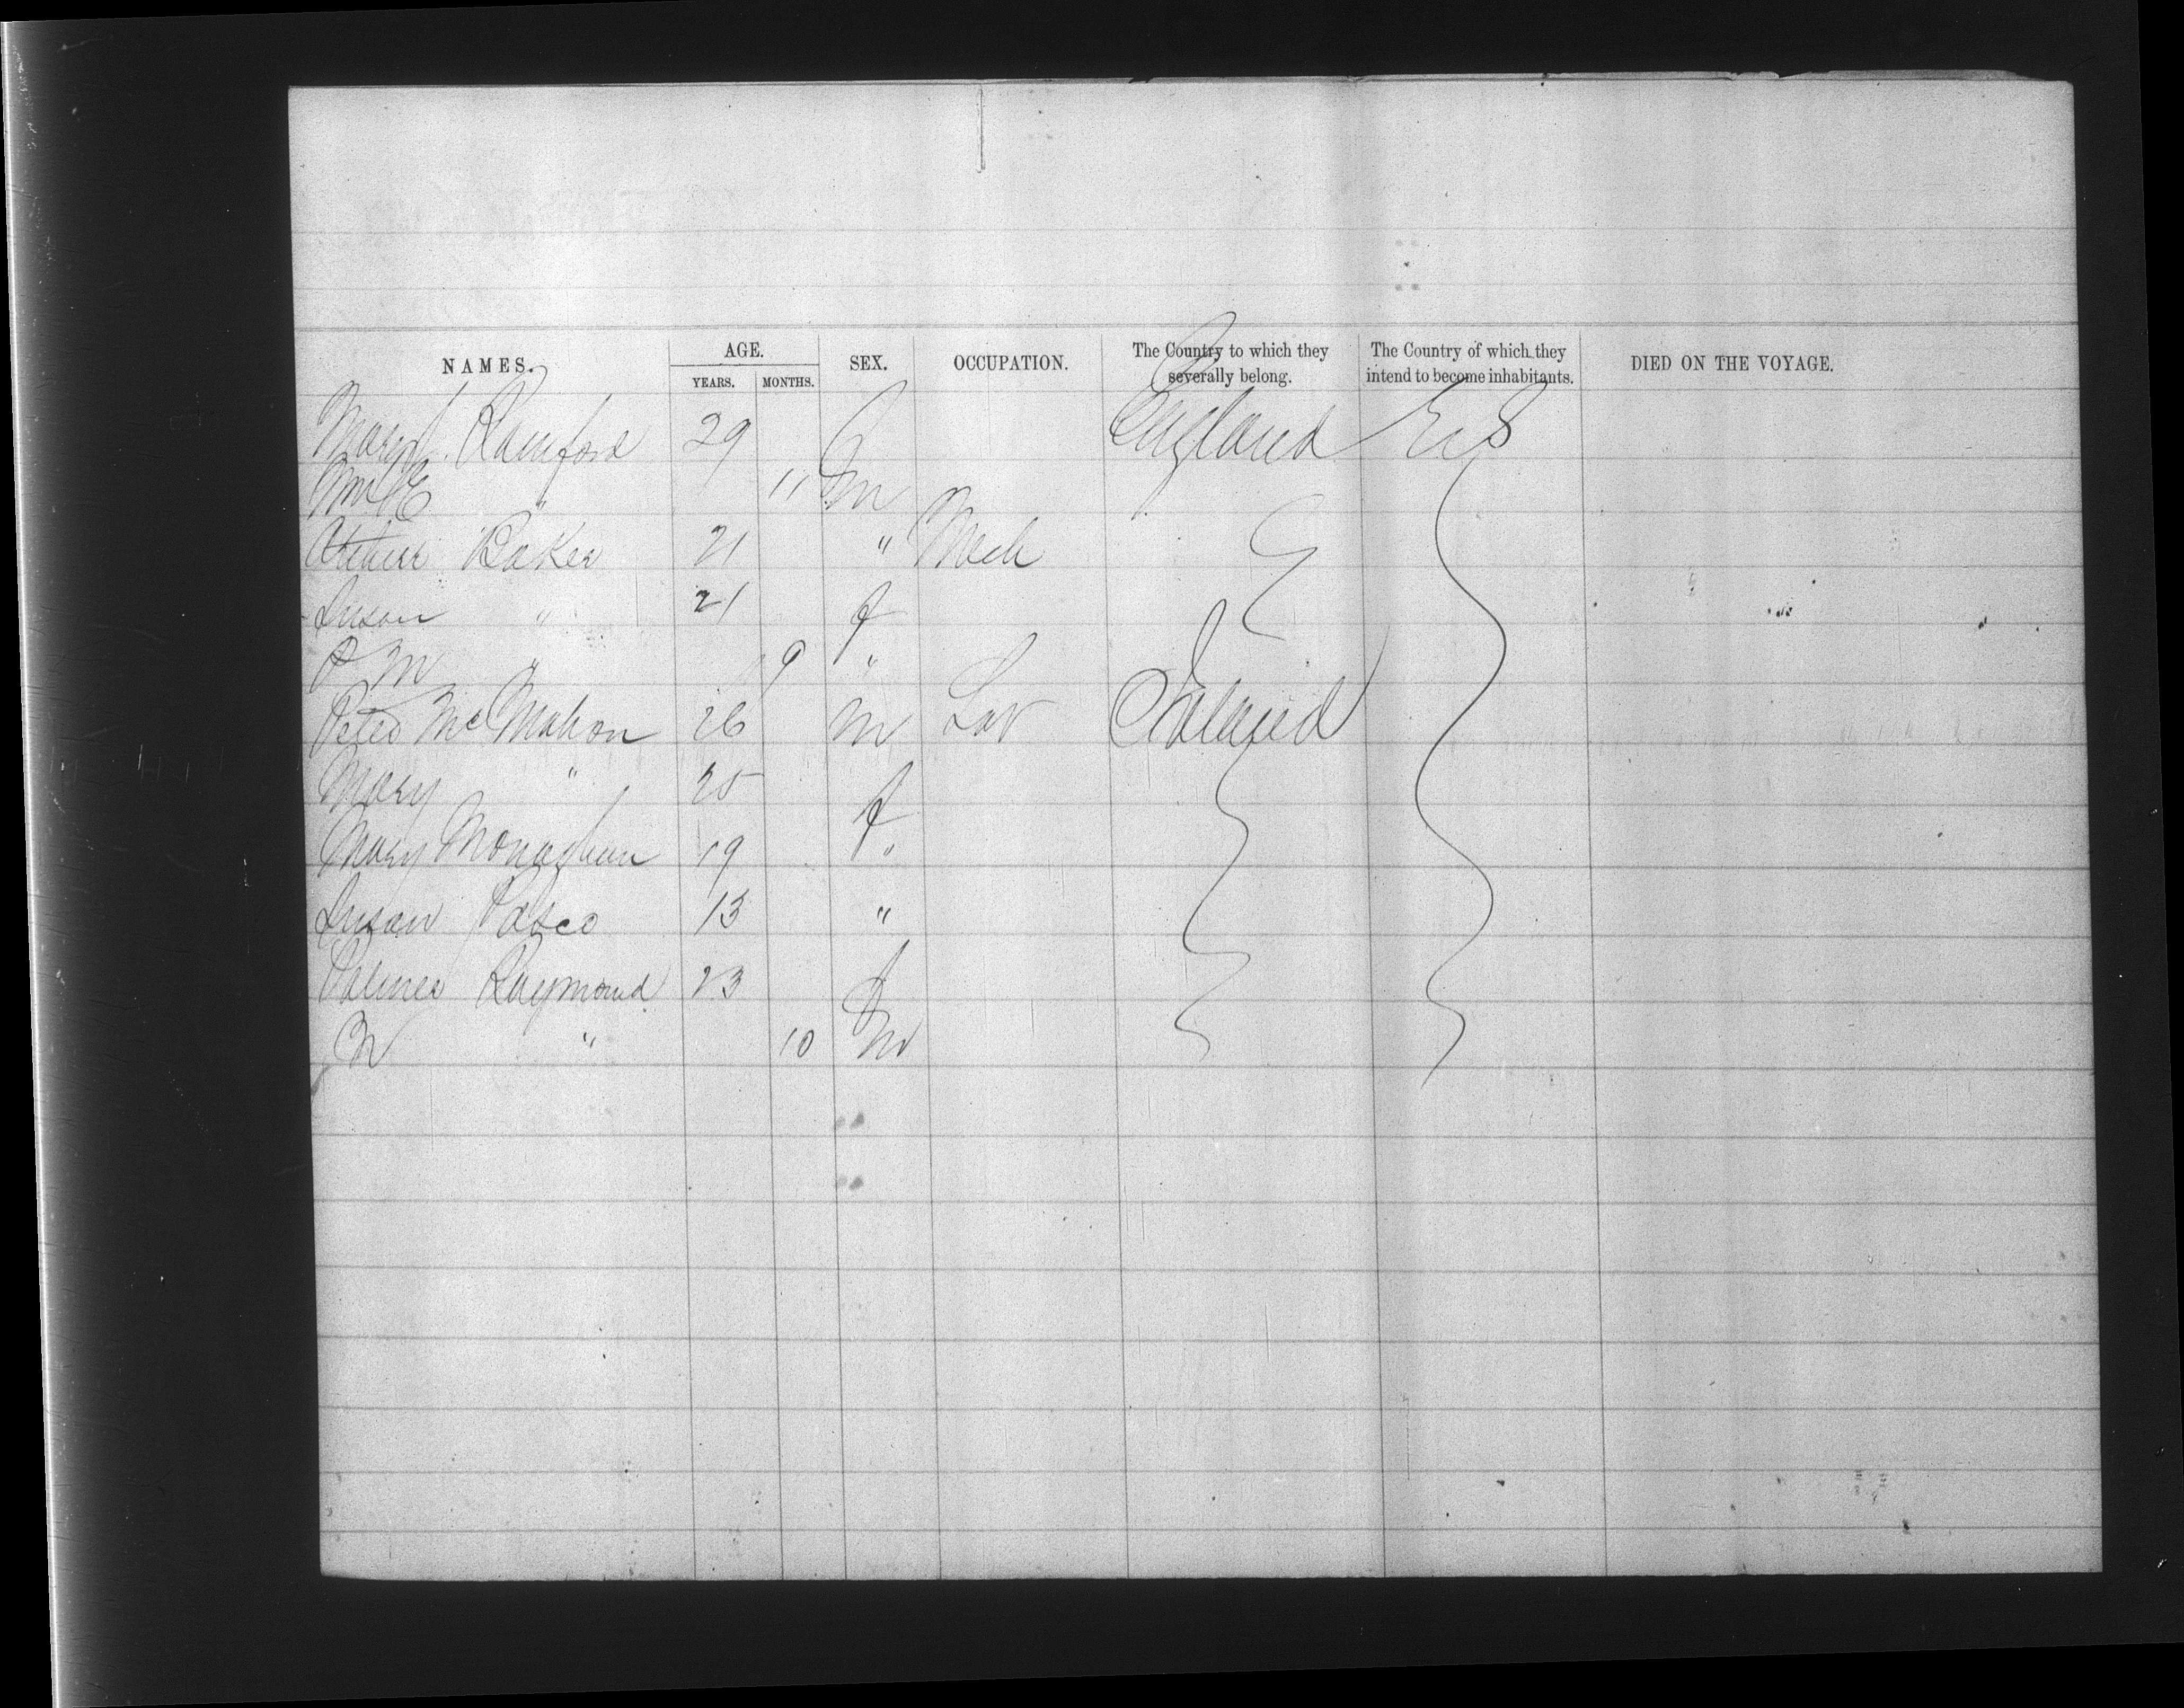 NAMES. AGE. SEX. OCCUPATION. The Country to which they severally belong. The Country of which they intend to become inhabitants. DIED ON THE VOYAGE.
YEARS. MONTHS.
Mary Rainford 29 f England U S
Wm E " 11 m
Arthur Baker 21 " Mech
Susan " 21 f
P M " 9 "
Peter McMahon 26 m Lab Ireland
Mary " 25 f
Mary Monaghan 19 "
Susan Pasco 13 "
Raymond 23 f
W " 10 m